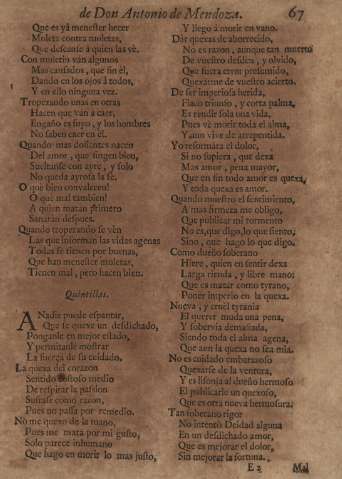 de Don Antonio de Mendoza. 67
Que es yà menester hacer
Muleta contra muletas,
Que descanse à quien las vè.
Con muletas van algunos
Mas cansados, que sin él,
Dando en los ojos à todos,
Y en ello ninguna vez.
Tropezando unas en otras
Hacen que van à caer,
Engaño es suyo, y los hombres
No saben caer en él.
Quando mas dolientes nacen
Del amor, que fingen bien,
Sueltanse con ayre, y solo
No queda ayrosa la fè.
O que bien convalecen!
O que mal tambien!
A quien matan primero
Sanarán despues.
Quando tropezando se vèn
Las que informan las vidas agenas
Todas se tienen por buenas,
Que han menester muletas,
Tienen mal, pero hacen bien.
Quintillas.
A Nadie puede espantar,
Que se queve un desdichado,
Ponganle en mejor estado,
Y permitanle mostrar
La fuerza de su cuidado.
La quexa del corazon
Sentido costoso medio
De respirar la passion
Sufrase como razon,
Pues no passa por remedio.
No me quexo de la mano,
Pues me mata por mi gusto,
Solo parece inhumano
Que hago en morir lo mas justo,
Y llego à morir en vano.
Dàr quexas de aborrecido,
No es razon, aunque tan muerto
De vuestro desden, y olvido,
Que fuera error presumido,
Quexarme de vuestro acierto.
De ser imperiosa herida,
Flaco triunfo, y corta palma,
Es rendir sola una vida,
Pues vè morir toda el alma,
Y aun vive de arrepentida.
Yo reformàra el dolor,
Si no supiera, que dexa
Mas amor, pena mayor,
Que en fin todo amor es quexa,
Y toda quexa es amor.
Quando muestro el sentimiento,
A mas firmeza me obligo,
Que publicar mi tormento
No es, que digo, lo que siento,
Sino, que hago lo que digo.
Como dueño soberano
Hiere, quien en sentir dexa
Larga rienda, y libre mano:
Que es matar como tyrano,
Poner imperio en la quexa.
Nueva, y cruel tyrania
El querer muda una pena,
Y sobervia demasiada,
Siendo toda el alma agena,
Que aun la quexa no sea mia.
No es cuidado embarazoso
Quexarse de la ventura,
Y es lisonja al dueño hermoso
El publicarlo un quexoso,
Que es otra nueva hermosura.
Tan soberano rigor
No intentò Deidad alguna
En un desdichado amor,
Que es mejorar el dolor,
Sin mejorar la fortuna.
E 2 Mal